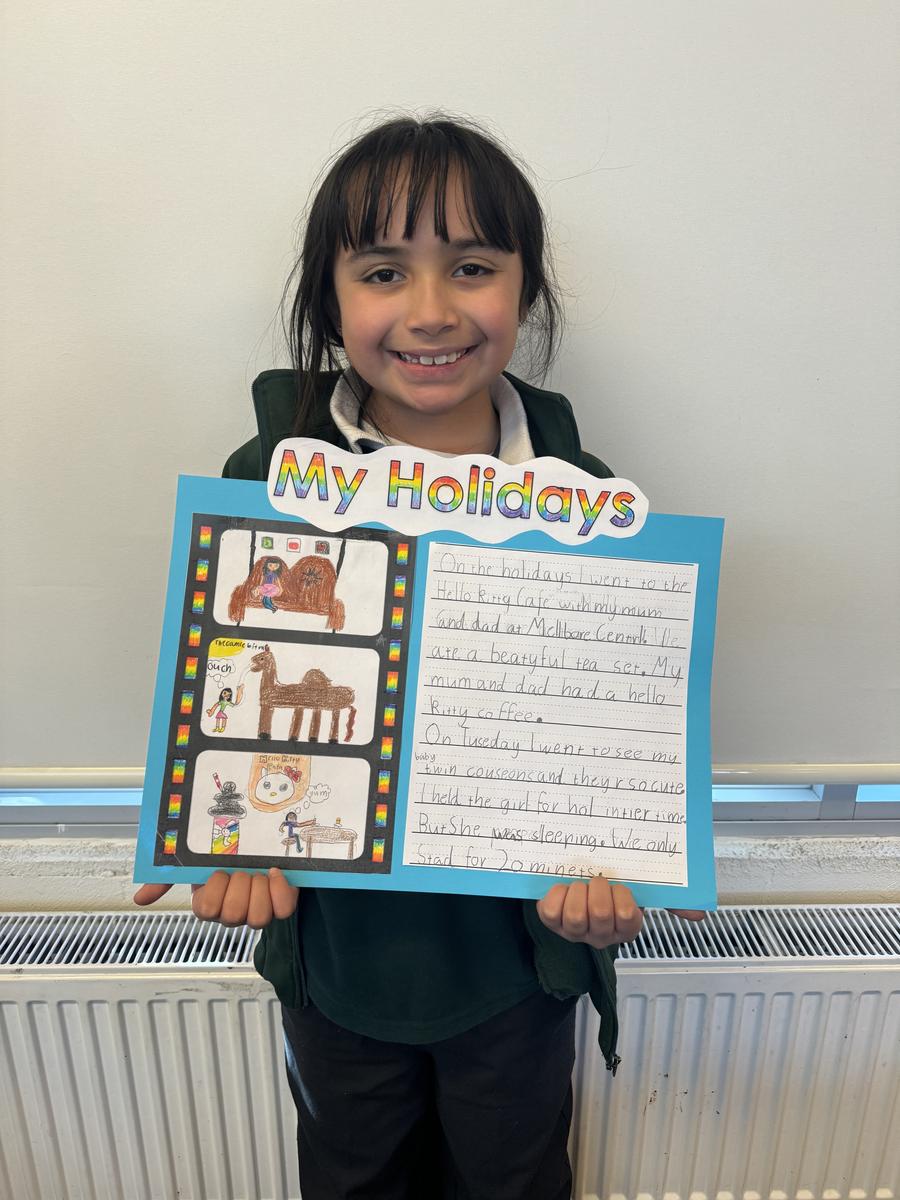 My Holidays
The camle bit me
Ouch
Hello Kitty
yum
On the holidays I went to the
Hello Kitty Cafe with my mum
and dad at Mellbare Centrll We
ate a beatyful tea set. My
mum and dad had a hello
kitty coffee.
On Tuseday I went to see my
baby
twin couseons and they r so cute
I held the girl for hol intier time
But She was sleeping. We only
Stad for 20 minets.